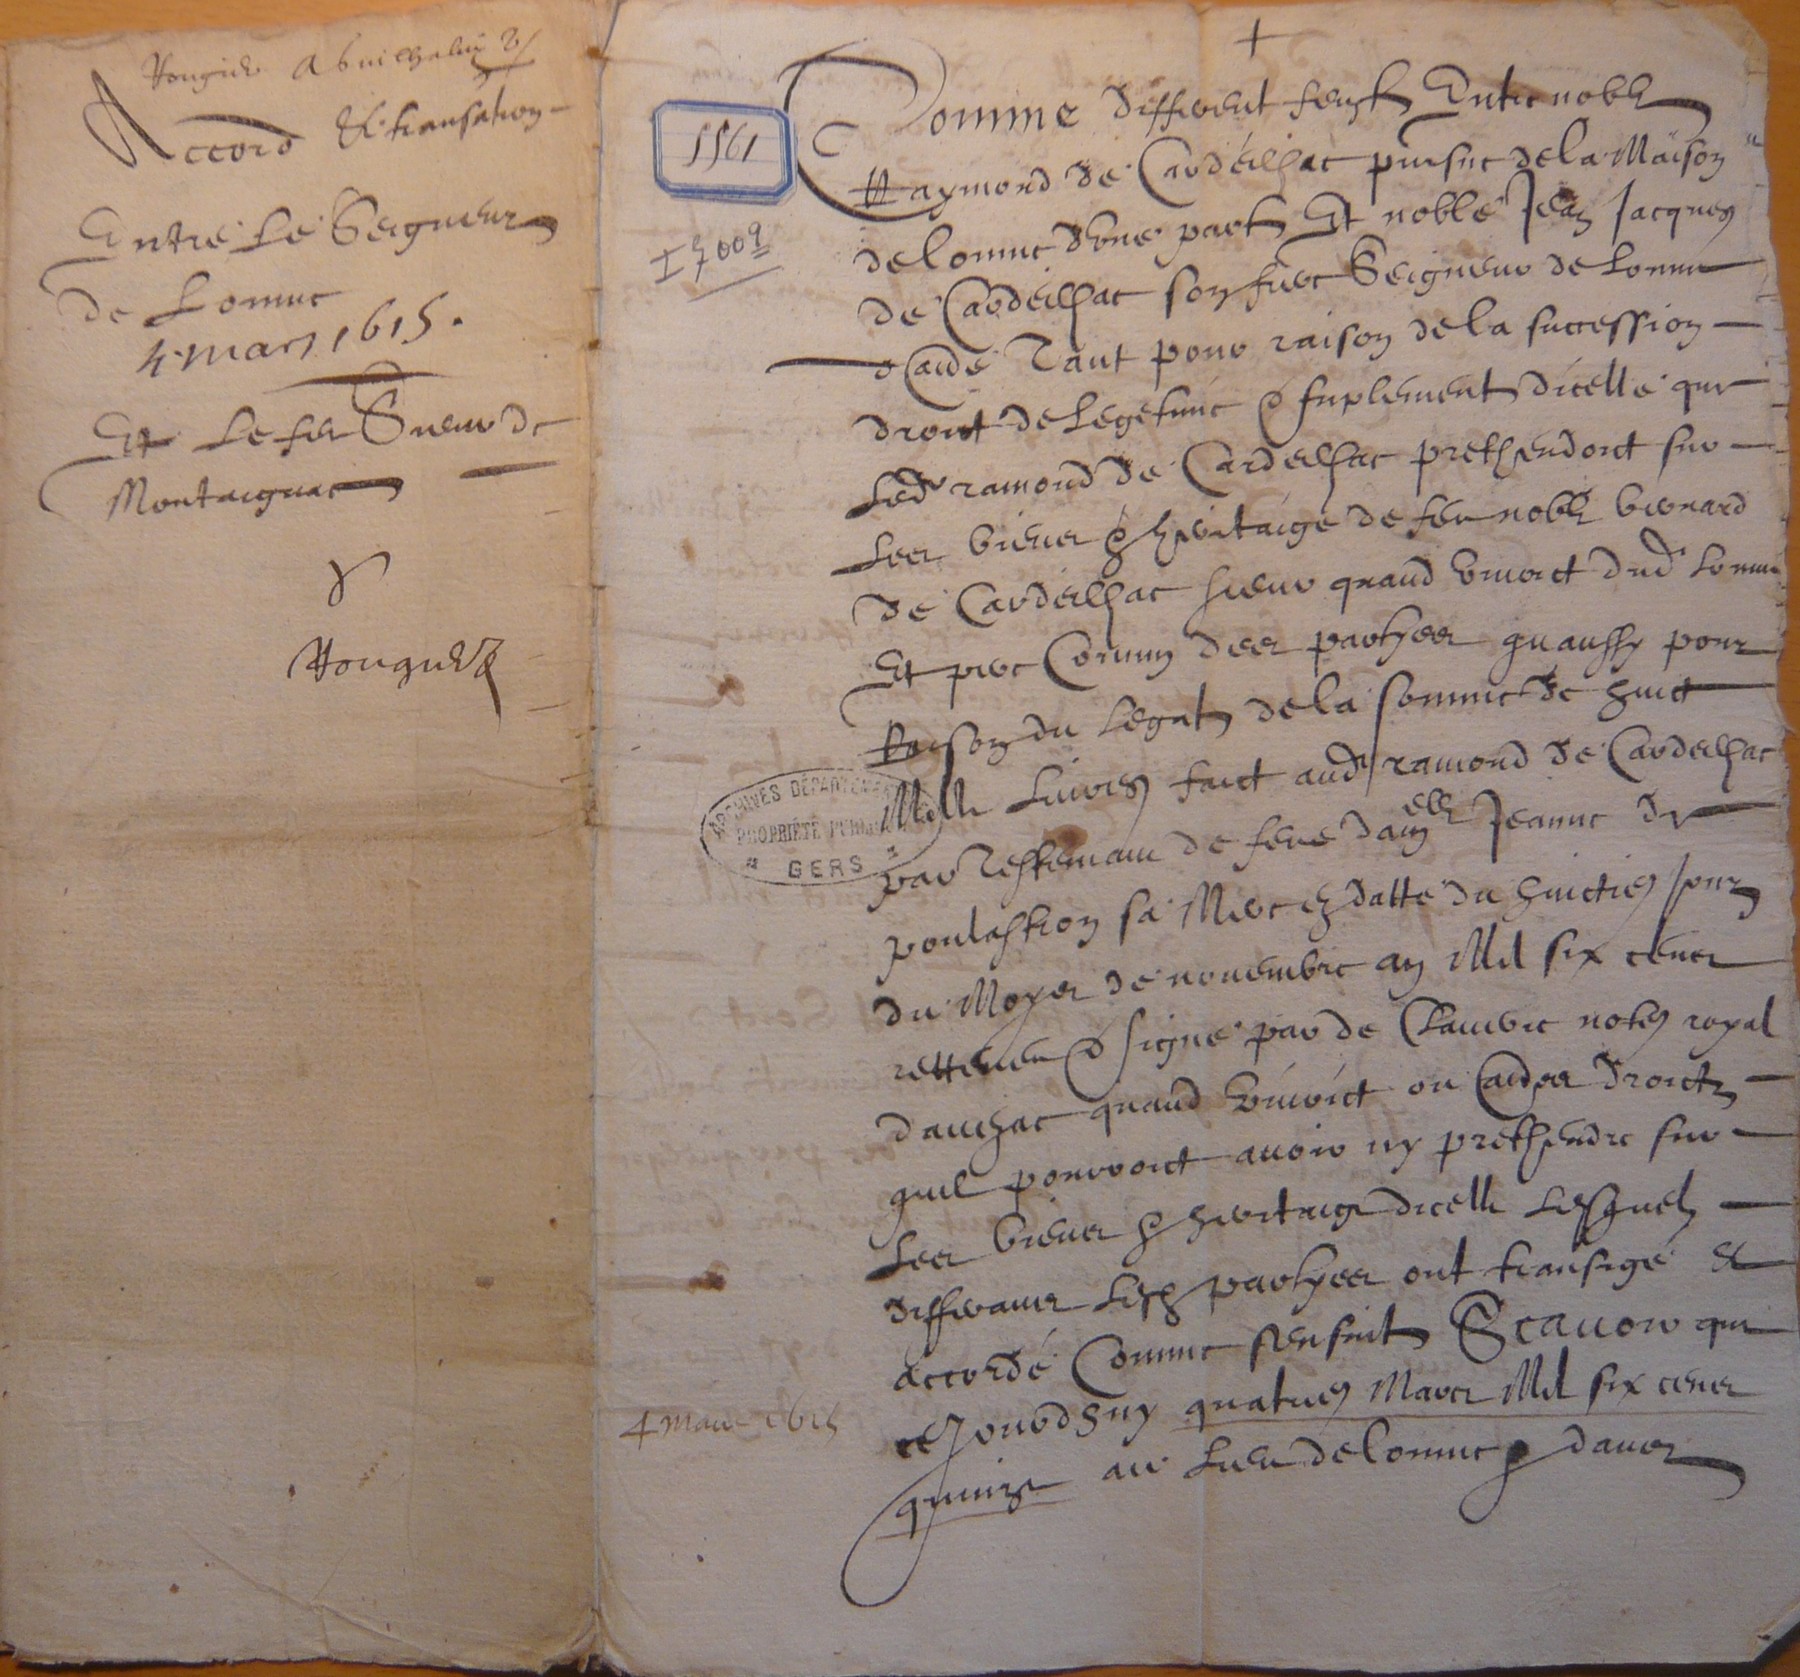 Accord Et transation
Entre Le Seigneur
de Lomne
4 mars 1615.
Et Le feu Sieur de
Montaignac
1561
I 7009
+
Comme different feust Entre noble
Raymond de Cardeilhac puisne de la Maison
de lomne dune part Et noble Jean Jacques
de Cardeilhac son frere Seigneur de Lomne
dicade Tant pour raison de la succession
droit de Legetime & suplement dicelle que
Led ramond de Cardeilhac prethendoit sur
Les biens & heritaige de feu noble bernard
de Cardeilhac sieur quand vivoict dud Lomne
Et pere Comun des partyes quaussy pour
Raison du Legat de la somme de huict
Mille Livres faict aud ramond de Cardeilhac
par Testemain de feue damelle Jeanne de
poulastron sa Mere en datte du huictieme Jour
du Moyes de novembre an Mil six cens
rettenu & signe par de Claverie note royal
dauzac quand vivoict ou aultres droicts
quil pourroict avoir ny prethendre sur
Les biens & heritaige dicelle Lesquels
differans Lesd partyes ont transigé Et
accordé Comme sensuit Scavoir que
ce Jourdhuy quatriem Mars Mil six cens
quinze au Lieu de lomne & dans
4 mars 1615
ARCHIVES DÉPARTEMENTALES
PROPRIÉTÉ PUBLIQUE
GERS